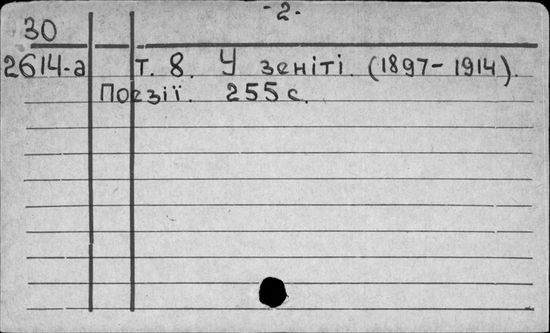 - 2 -
30
2614-а т. 8. У зеніті. (1897-1914).
Поезії. 255 с.